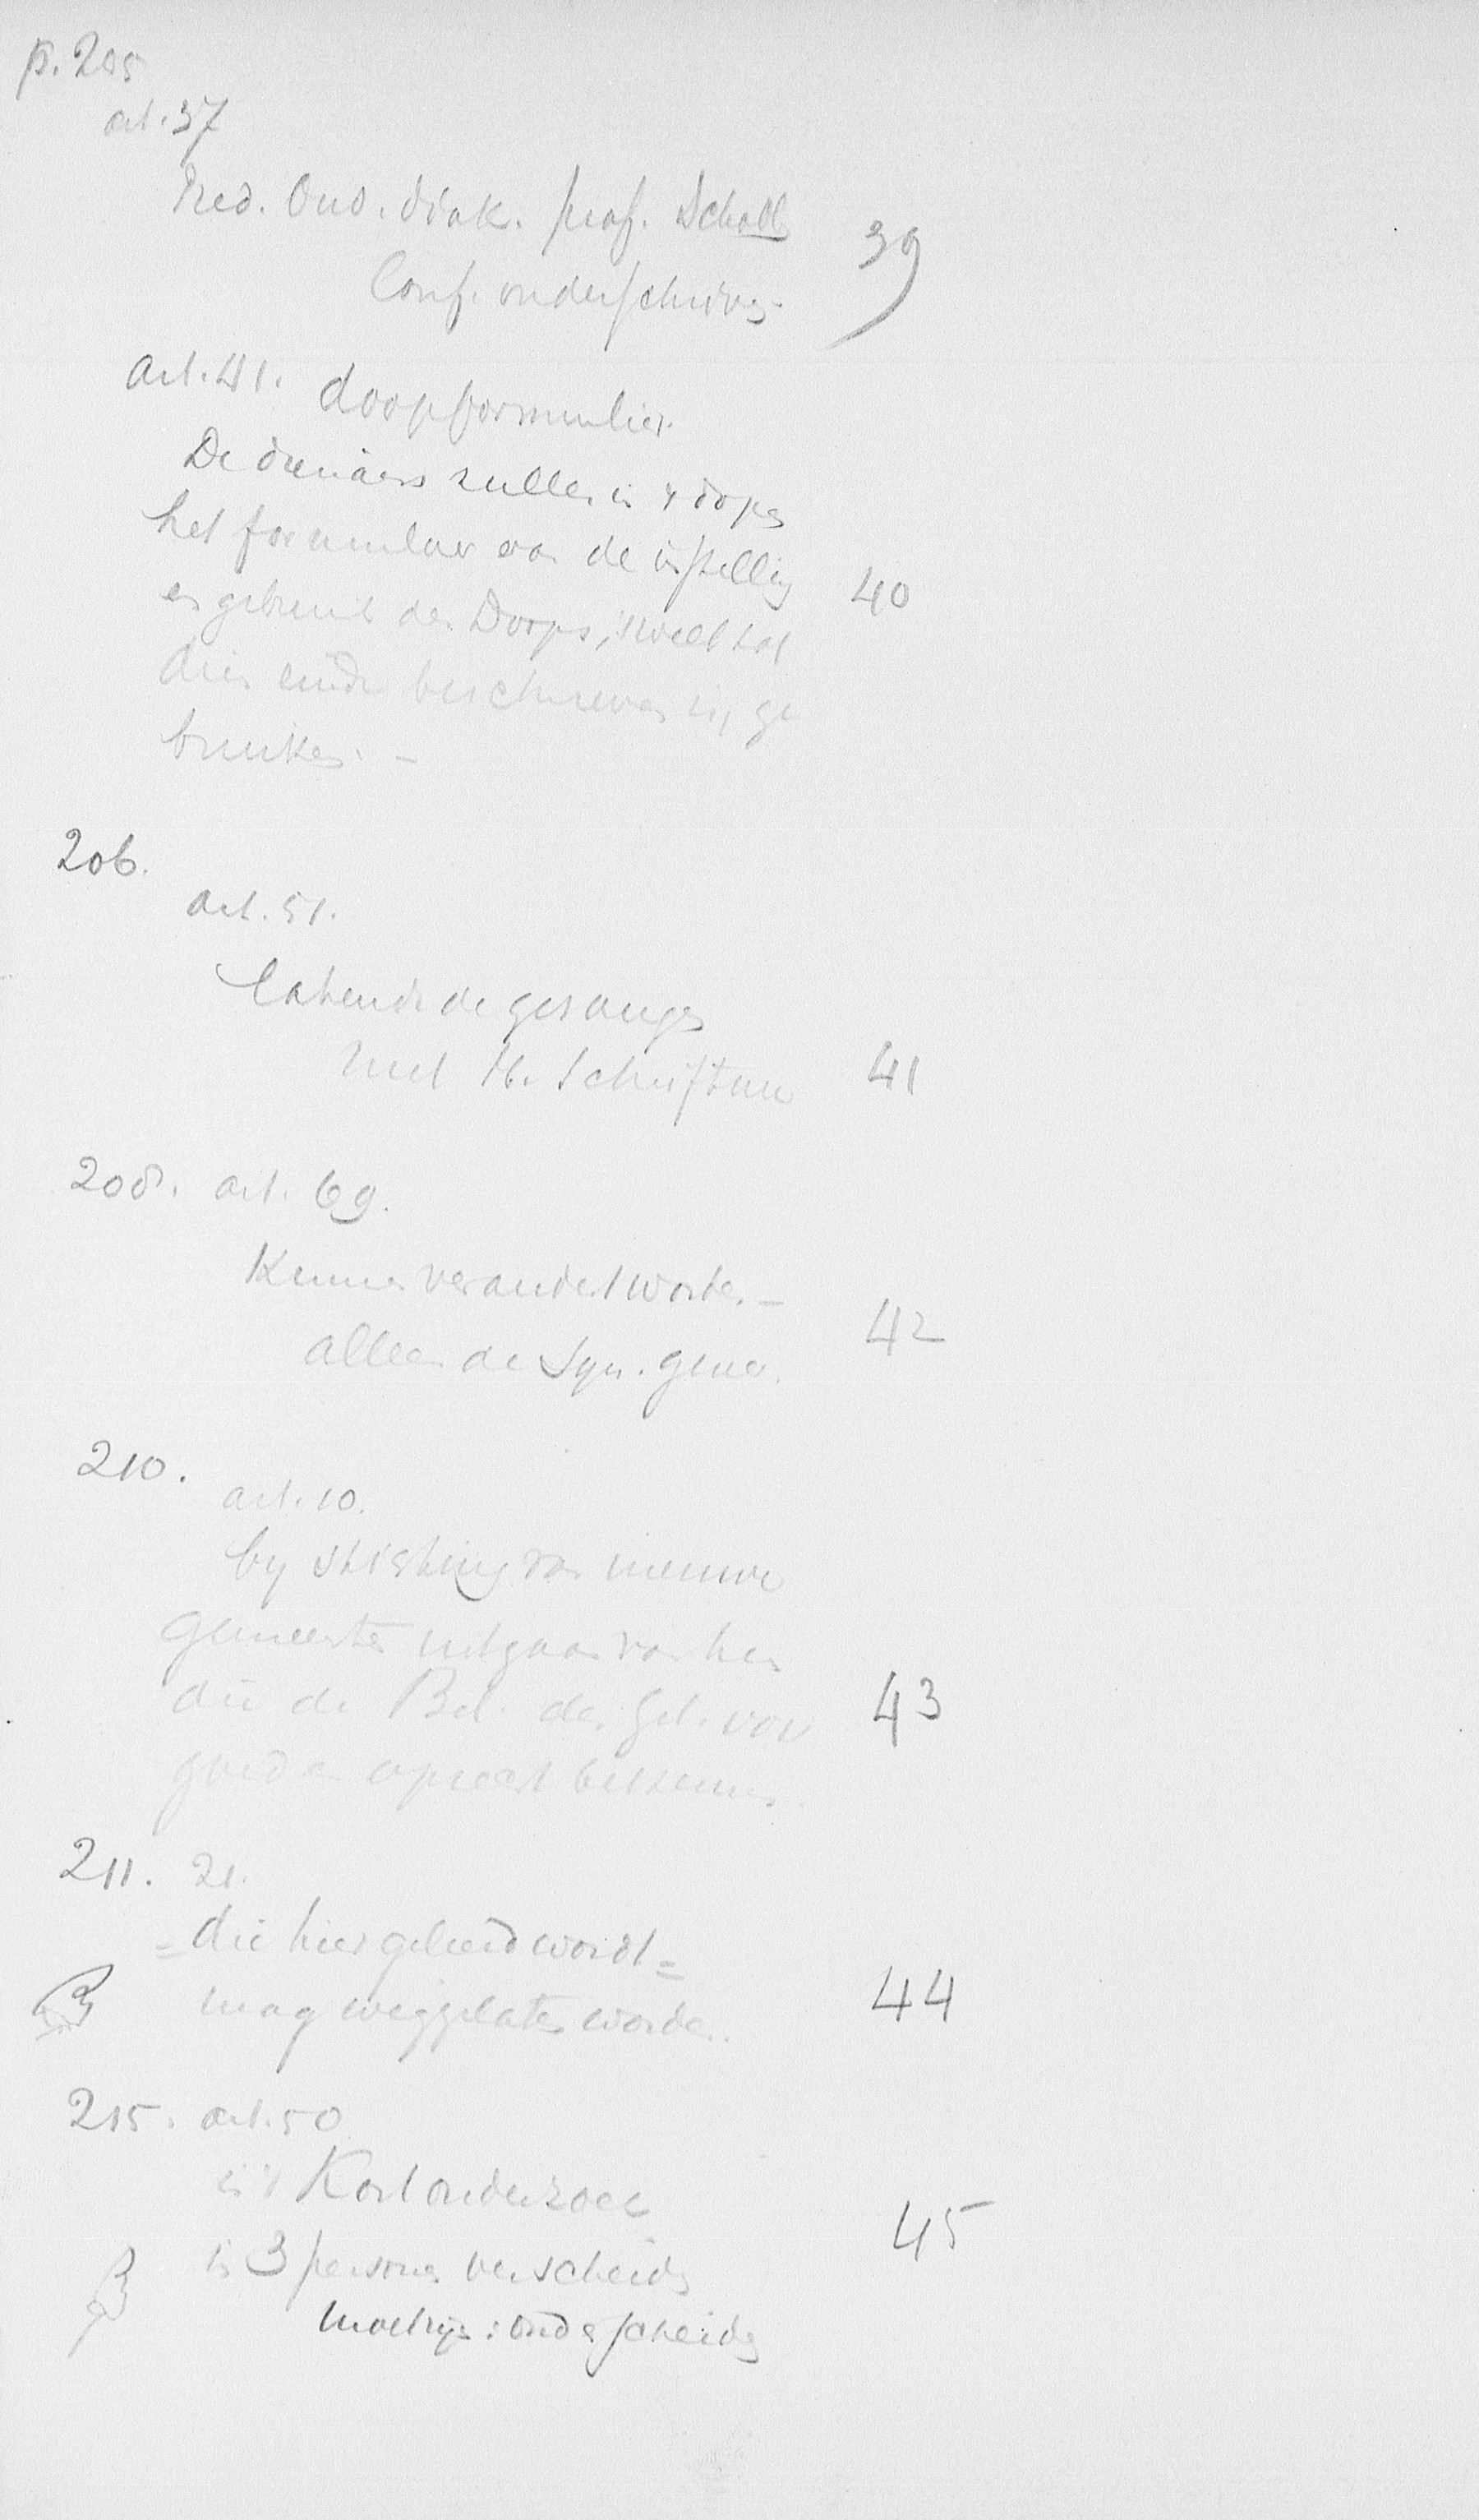 p. 205
art. 37
Pred. Oud. diak. prof. Schooll 39
Conf. onderschrivg.
art. 41. doopformulier.
De dienaers zulle in 't dope
het formulier van de instellig 40
en gebruik des Doops, 'twelk tot
dien einde beschreven is, ge
bruiken. -
206.
art. 51.
de gezangen
met H. Schriftuur 41
208. art. 69.
Kunne verandert worde. -
alleen de Syn. gener. 42
210.
art. 10.
by stichting van nieuwe
gemeente uitgaan van hen
die de Bel. des Gel. voor 43
goed en oprecht bekennen.
211. 21.
= die hier geleerd wordt =
β mag weggelaten worden. 44
215. art. 50
in 't Kort onderzoec 45
β in 3 personen verscheide
moet zijn: onderscheide